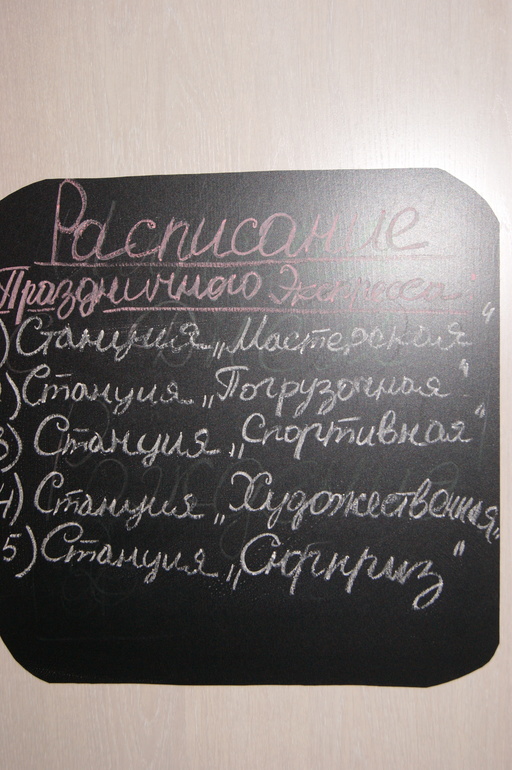 Расписание
Праздничного Экспресса:
) Станция „Мастерская“
) Станция „Погрузочная“
3) Станция „Спортивная“
4) Станция „Художественная“
5) Станция „Сюрприз“